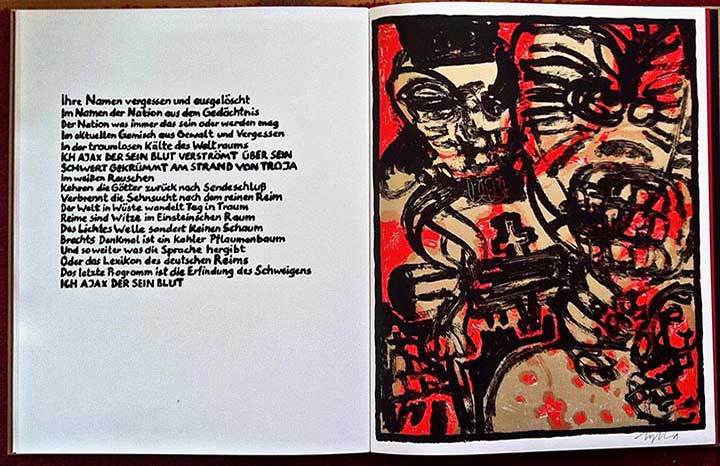 Ihre Namen vergessen und ausgelöscht
Im Namen der Nation aus dem Gedächtnis
Der Nation was immer das sein oder werden mag
Im aktuellen Gemisch aus Gewalt und Vergessen
In der traumlosen Kälte des Weltraums
ICH AJAX DER SEIN BLUT VERSTRÖMT ÜBER SEIN
SCHWERT GEKRÜMMT AM STRAND VON TROJA
Im weißen Rauschen
Kehren die Götter zurück nach Sendeschluß
Verbrennt die Sehnsucht nach dem reinen Reim
Der Welt in Wüste wandelt Tag in Traum
Reime sind Witze im Einsteinschen Raum
Des Lichtes Welle sondert Keinen Schaum
Brechts Denkmal ist ein Kahler Pflaumenbaum
Und so weiter was die Sprache hergibt
Oder das Lexikon des deutschen Reims
Das letzte Programm ist die Erfindung des Schweigens
ICH AJAX DER SEIN BLUT